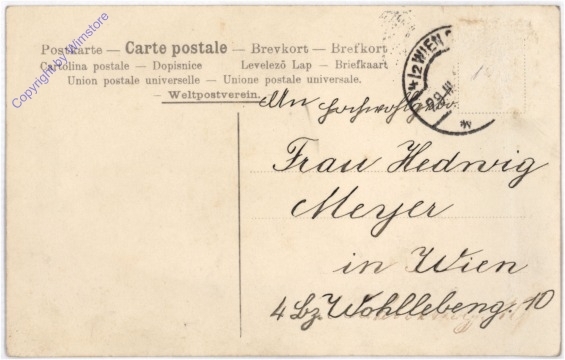 Postkarte — Carte postale — Brevkort — Brefkort
Cartolina postale — Dopisnice Levelező Lap — Briefkaart
Union postale universelle — Unione postale universale.
— Weltpostverein. —
Copyright by Wimstore
4/2 WIEN
An Hochwohlgeb.
Frau Hedwig
Meyer
in Wien
4 Bz. Wohllebeng. 10